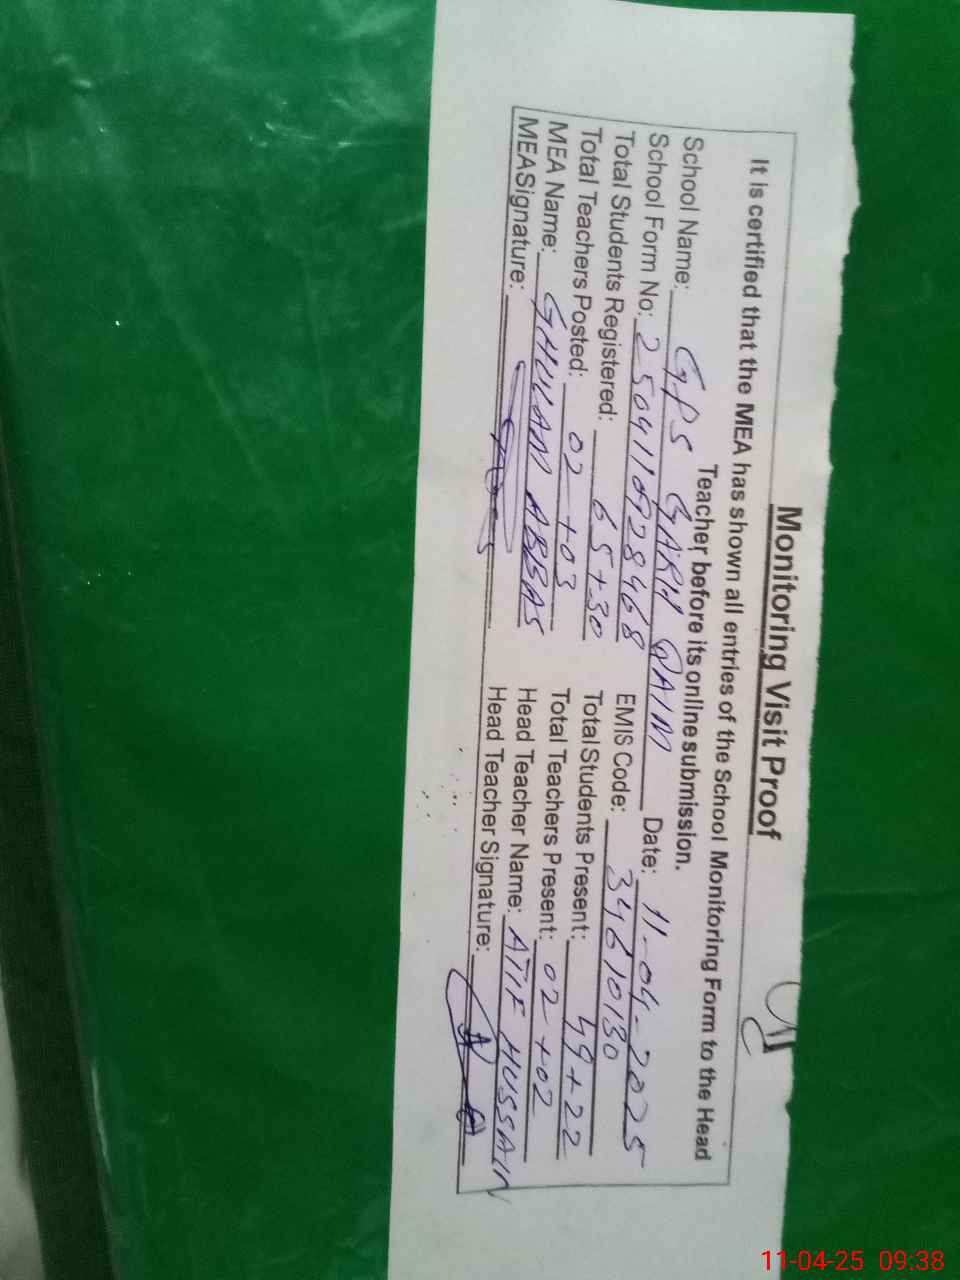 Monitoring Visit Proof
It is certified that the MEA has shown all entries of the School Monitoring Form to the Head
Teacher before its online submission.
School Name: GPS GARH QAIM Date: 11-04-2025
School Form No: 2504110928468 EMIS Code: 34610130
Total Students Registered: 65+30 Total Students Present: 49+22
Total Teachers Posted: 02+03 Total Teachers Present: 02+02
MEA Name: GHULAM ABBAS Head Teacher Name: ATIF HUSSAIN
MEASignature: Head Teacher Signature:
11-04-25 09:38